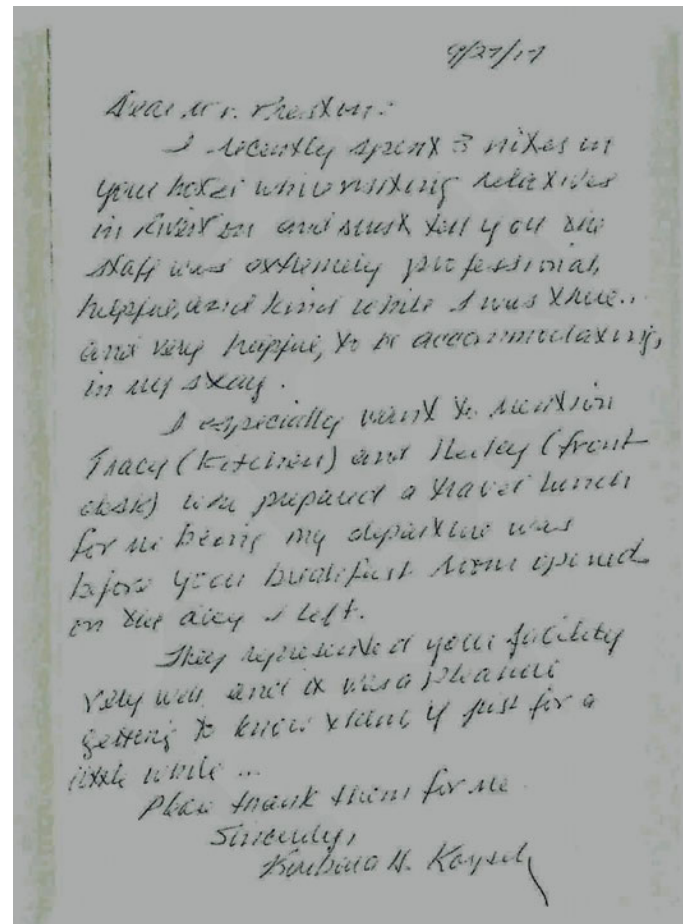 9/27/17
Dear Mr. Preston:
I recently spent 3 nites in
your hotel while visiting relatives
in and must tell you the
staff was extremely professional,
helpful, and kind while I was there..
and very helpful, to be accommodating,
in my stay.
I especially want to mention
Tracy (Kitchen) and (front
desk) who prepared a travel lunch
for me being my departure was
before your breakfast room opened
on the day I left.
They represented your facility
very well and it was a pleasure
getting to know them if just for a
little while ...
Please thank them for me.
Sincerely,
Barbara H.